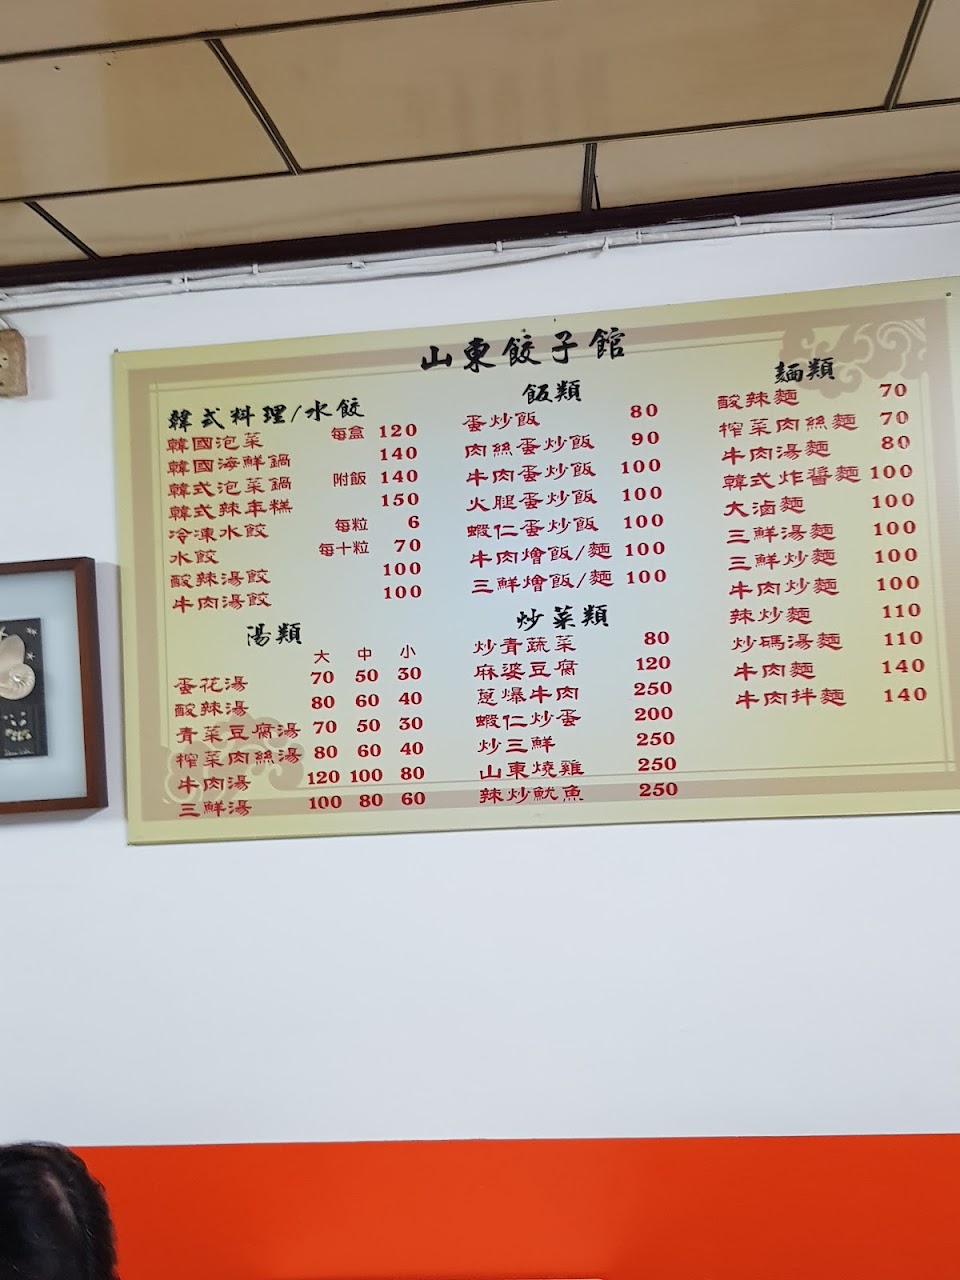 山東餃子館
韓式料理/水餃
韓國泡菜 每盒 120
韓國海鮮鍋 140
韓式泡菜鍋 附飯 140
韓式辣年糕 150
冷凍水餃 每粒 6
水餃 每十粒 70
酸辣湯餃 100
牛肉湯餃 100
湯類
大 中 小
蛋花湯 70 50 30
酸辣湯 80 60 40
青菜豆腐湯 70 50 30
榨菜肉絲湯 80 60 40
牛肉湯 120 100 80
三鮮湯 100 80 60
飯類
蛋炒飯 80
肉絲蛋炒飯 90
牛肉蛋炒飯 100
火腿蛋炒飯 100
蝦仁蛋炒飯 100
牛肉燴飯/麵 100
三鮮燴飯/麵 100
炒菜類
炒青蔬菜 80
麻婆豆腐 120
蔥爆牛肉 250
蝦仁炒蛋 200
炒三鮮 250
山東燒雞 250
辣炒魷魚 250
麵類
酸辣麵 70
榨菜肉絲麵 70
牛肉湯麵 80
韓式炸醬麵 100
大滷麵 100
三鮮湯麵 100
三鮮炒麵 100
牛肉炒麵 100
辣炒麵 110
炒碼湯麵 110
牛肉麵 140
牛肉拌麵 140